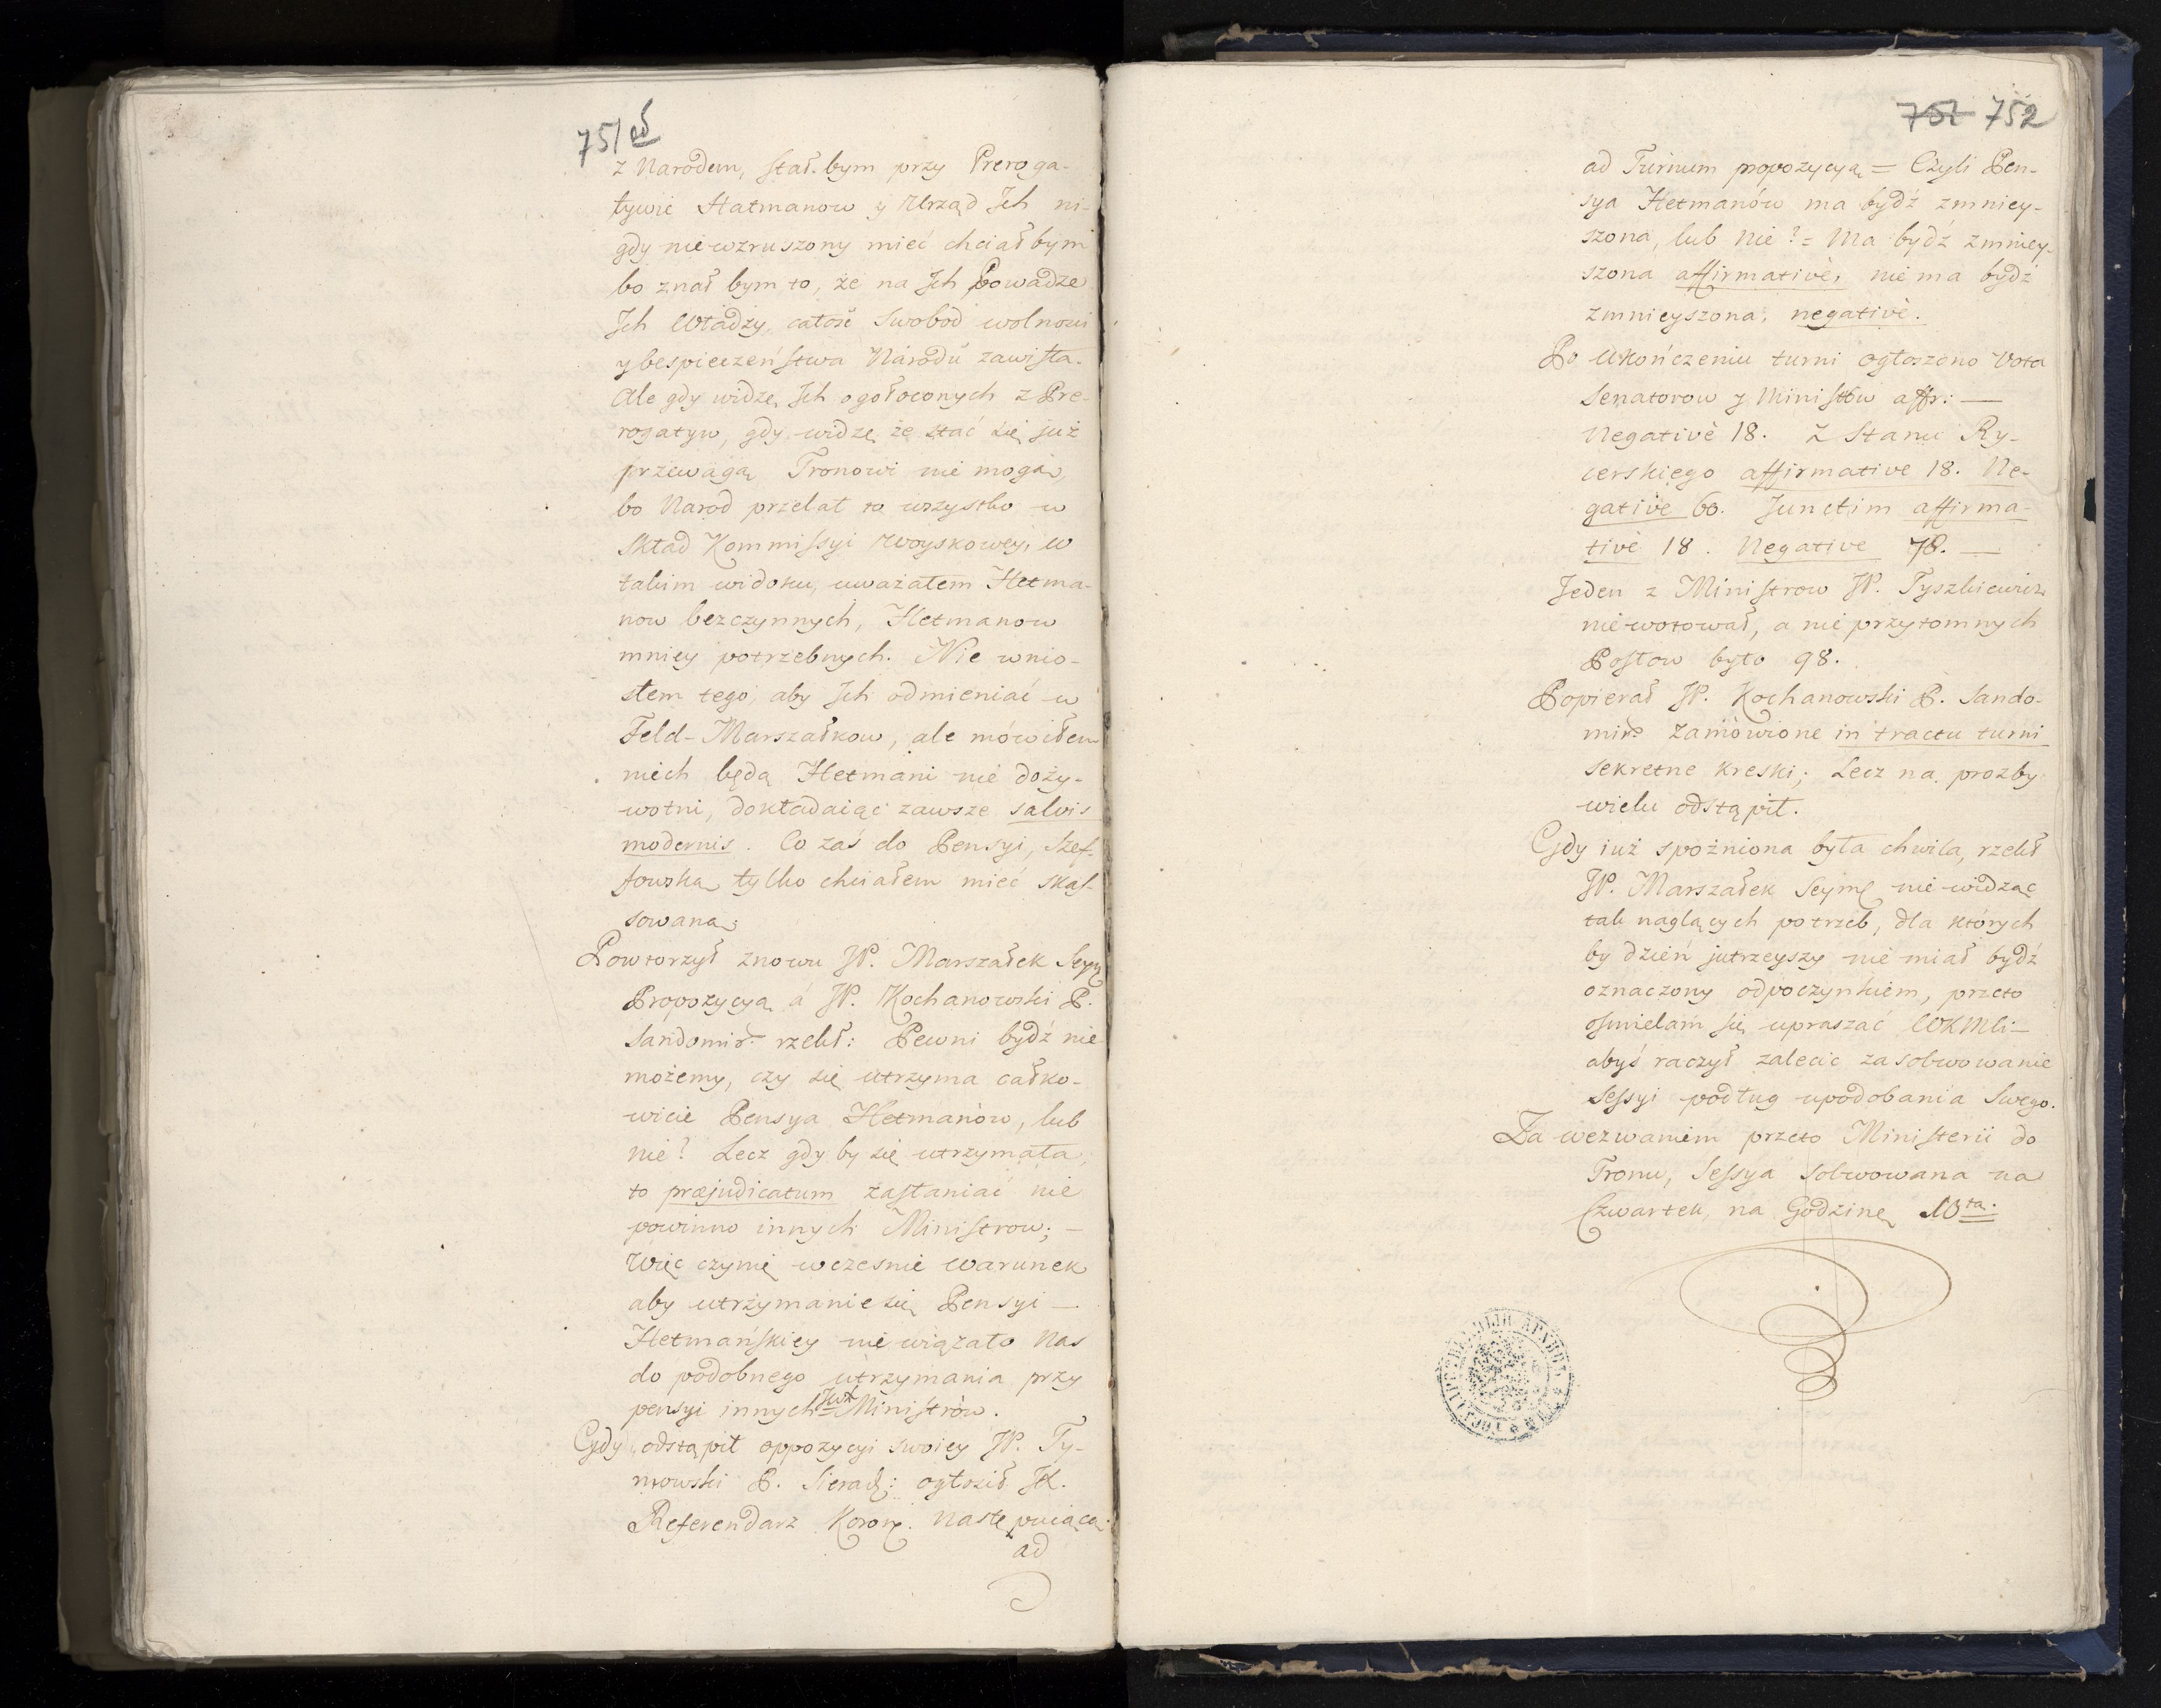 751 об
z Narodem, stał bym przy Preroga-
tywie Hatmanow y Urząd Jch ni-
gdy niewzruszony mieć chciałbym
bo znał bym to, że na Jch Powadze
Jch Władzy, całość Swobód wolnosci
y bespieczeństwa Narodu zawisła.
Ale gdy widzę Jch ogołoconych z Pre-
rogatyw, gdy widzę że stać się już
przewagą Tronowi nie mogą,
bo Narod przelał to wszystko w
Skład Kommissyi Woyskowey, w
takim widoku, uważałem Hetma-
now bezczynnych, Hetmanow
mniey potrzebnych. Nie wnio-
słem tego, aby Jch odmieniać w
Feld-Marszałkow, ale mówiłem
niech będą Hetmani nie doży-
wotni, dokładaiąc zawsze salvis
modernis. Co zaś do Pensyi, Szef-
fowską tylko chciałem mieć skas-
sowaną;
Powtorzył znowu JP. Marszałek Seym
Propozycyą á JP. Kochanowski P.
Sandomir. rzekł: Pewni bydź nie
możemy, czy się utrzyma całko-
wicie Pensya Hetmanów, lub
nie? Lecz gdy by się utrzymała,
to præjudicatum zasłaniać nie
powinno innych Ministrow; —
Więc czynię wczesnie warunek
aby utrzymanie się Pensyi —
Hetmańskiey nie wiązało Nas
do podobnego utrzymania przy
pensyi innych JWW Ministrów.
Gdy odstąpił oppozycyi swoiey JP. Ty-
mowski P. Sieradz: ogłosił JX.
Referendarz Koron. Następuiącą
ad
752
ad Turnum propozycyą = Czyli Pen-
sya Hetmanów ma bydź zmniey-
szona, lub nie? = Ma bydź zmniey-
szona affirmativè, nie ma bydź
zmnieyszona, negativè.
Po Ukończeniu turni ogłoszono Vota
Senatorow y Ministrów affir: —
Negativè 18. Z Stanu Ry-
cerskiego affirmative 18. Ne-
gativè 60. Junctim affirma-
tivè 18. Negative 78. —
Jeden z Ministrow JP. Tyszkiewicz
nie wotował, a nie przytomnych
Posłow było 98.
Popierał JP. Kochanowski P. Sando-
mir. Zamówione in tractu turni
sekretne kreski; Lecz na prozby
wielu odstąpił.
Gdy iuż spóżniona była chwila, rzekł
JP. Marszałek Seym. nie widząc
tak naglących potrzeb, dla których
by dzień jutrzeyszy nie miał bydź
oznaczony odpoczynkiem, przeto
osmielam się upraszać WKMci —
abyś raczył zalecic zasolwowanie
Sessyi podług upodobania Swego.
Za wezwaniem przeto Ministerii do
Tronu, Sessya solwowana na
Czwartek, na Godzinę 10ta.